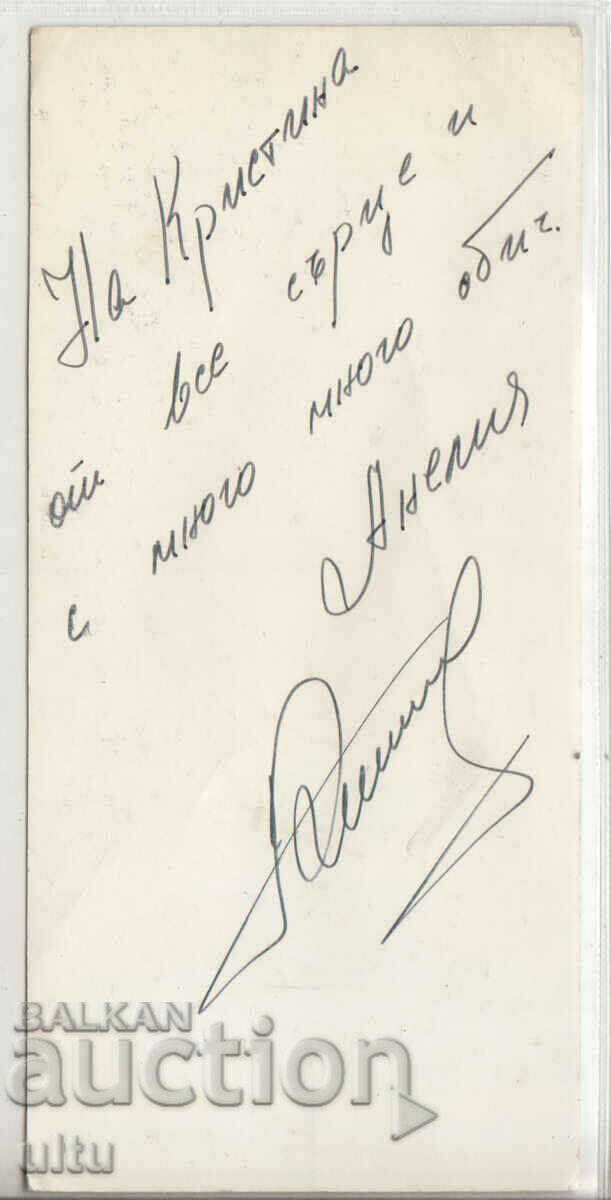 На Кристина
от все сърце и
с много много обич.
Анелия
BALKAN
auction
ultu